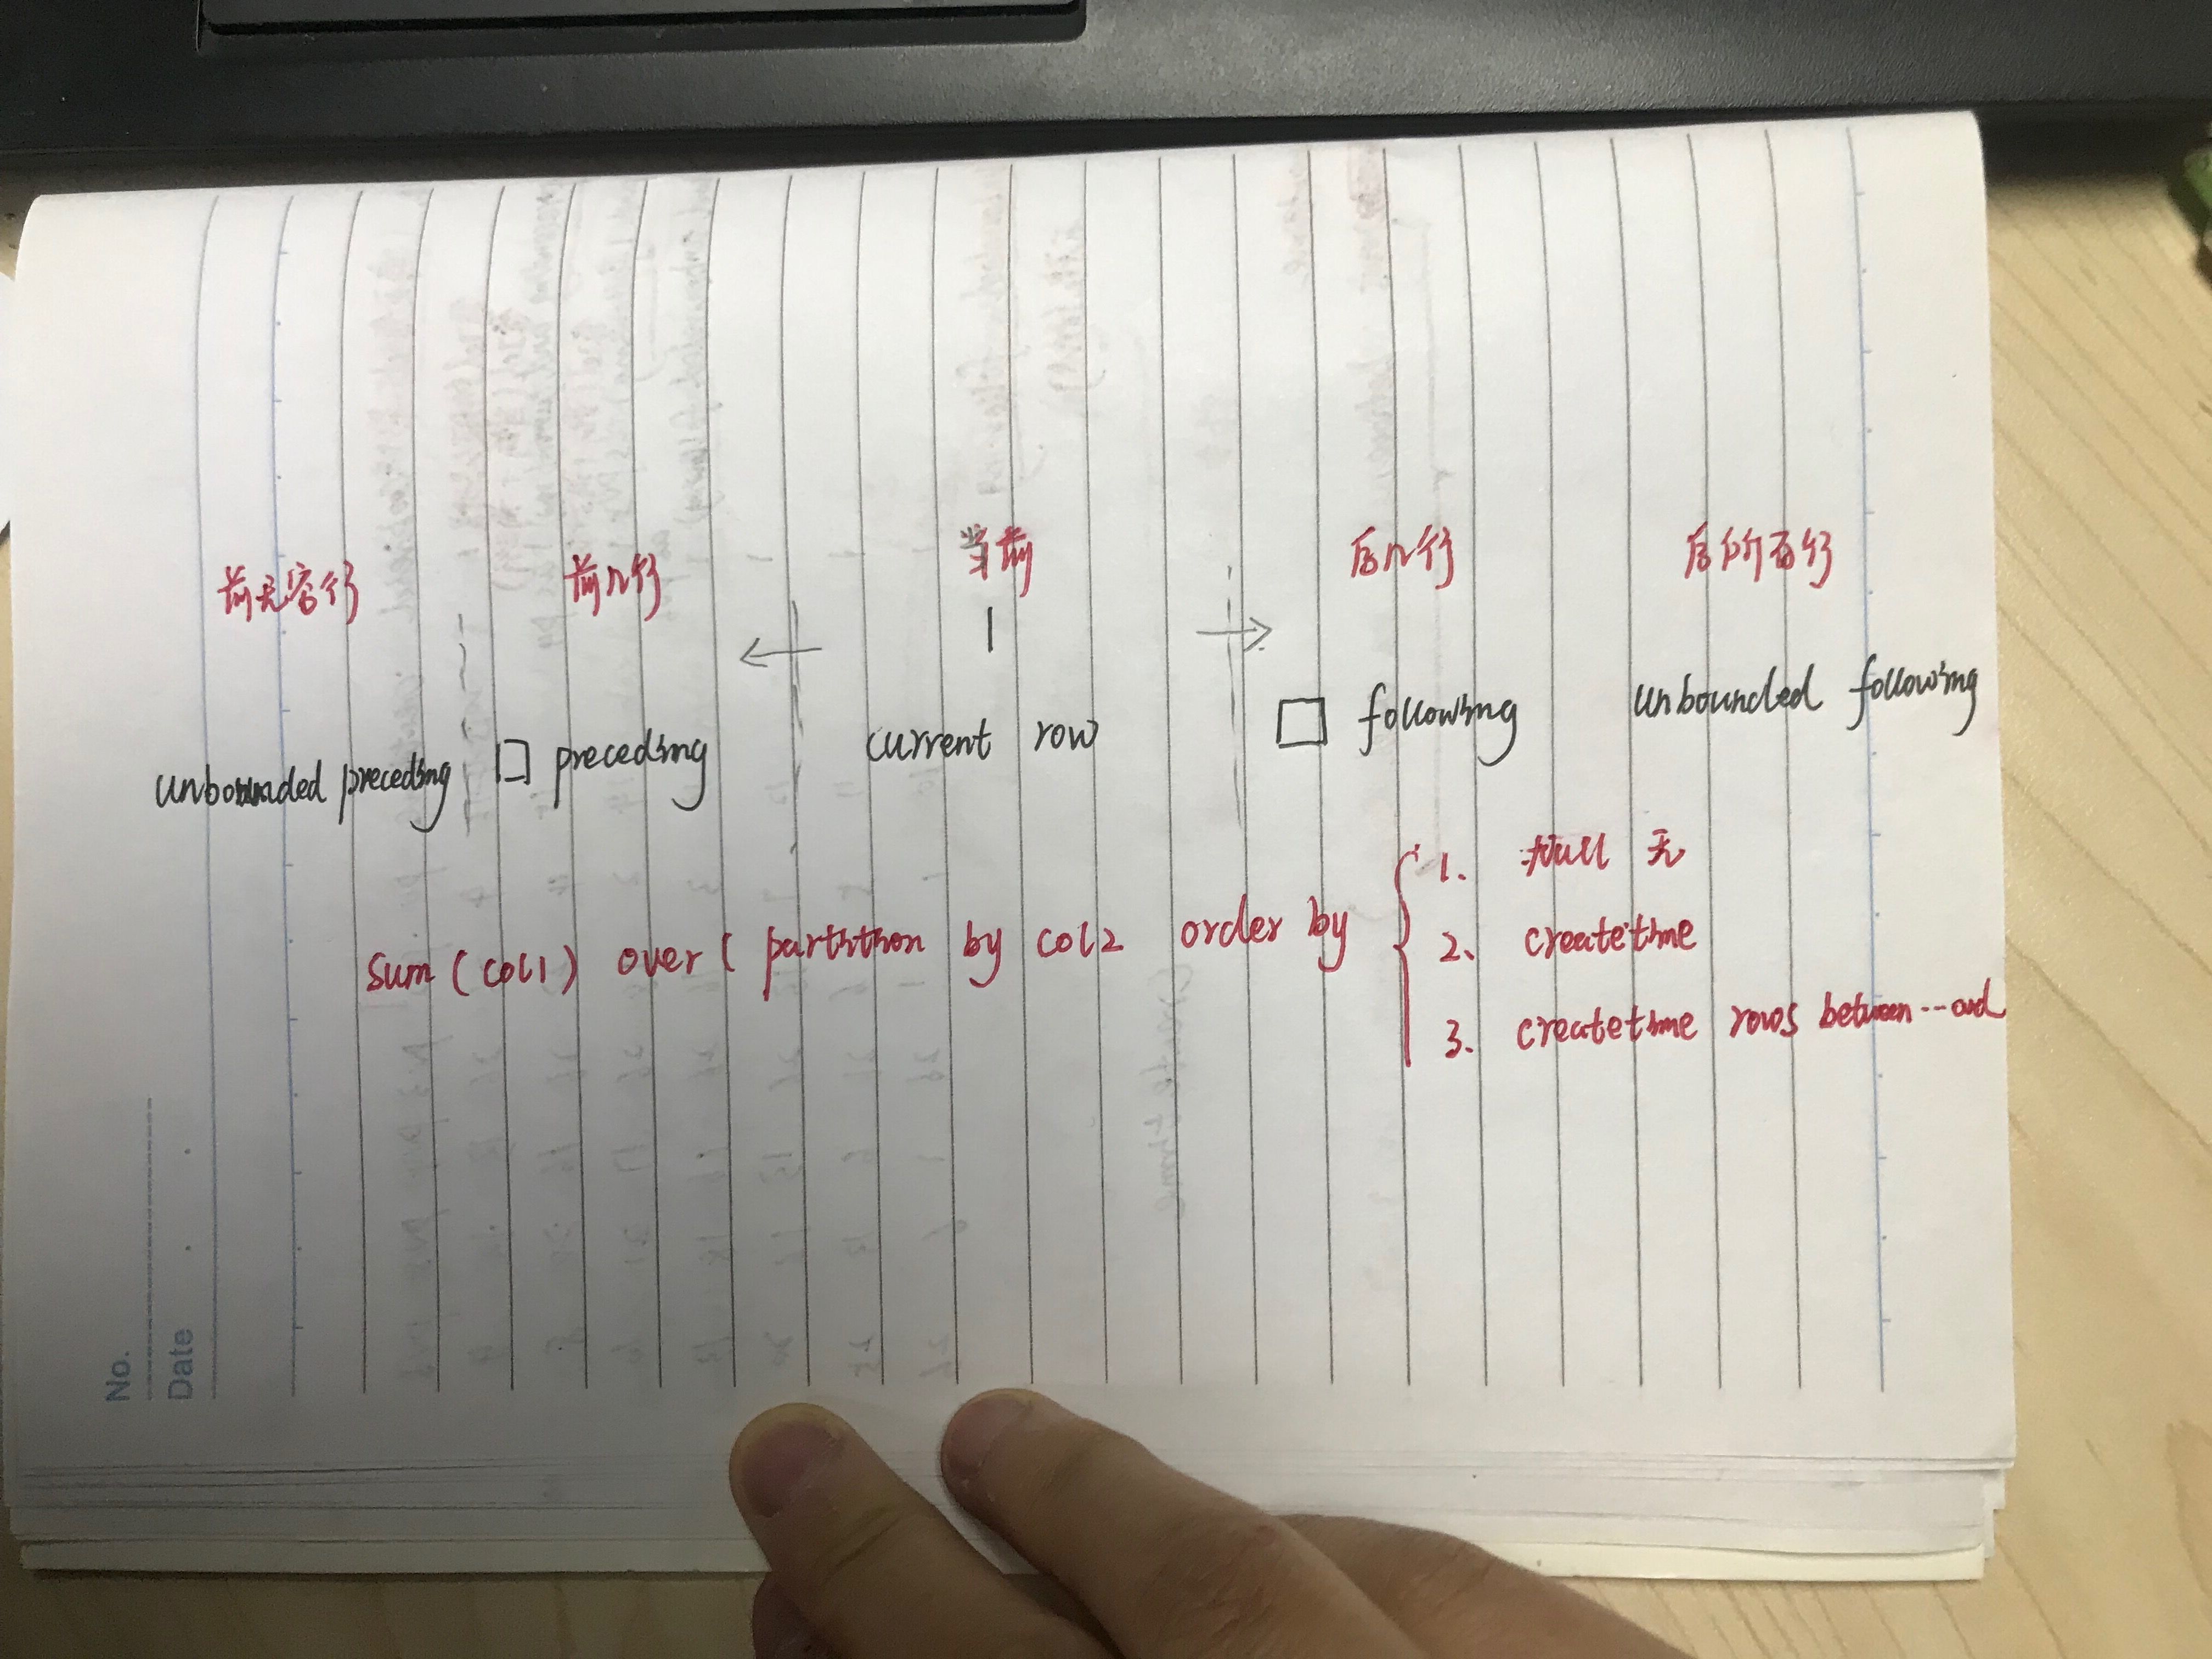 前无穷行 前几行 当前 后几行 后所有行
unbounded preceding □ preceding current row □ following unbounded following
sum(col1) over( partition by col2 order by
1. null 无
2. createtime
3. createtime rows between ... and
No.
Date